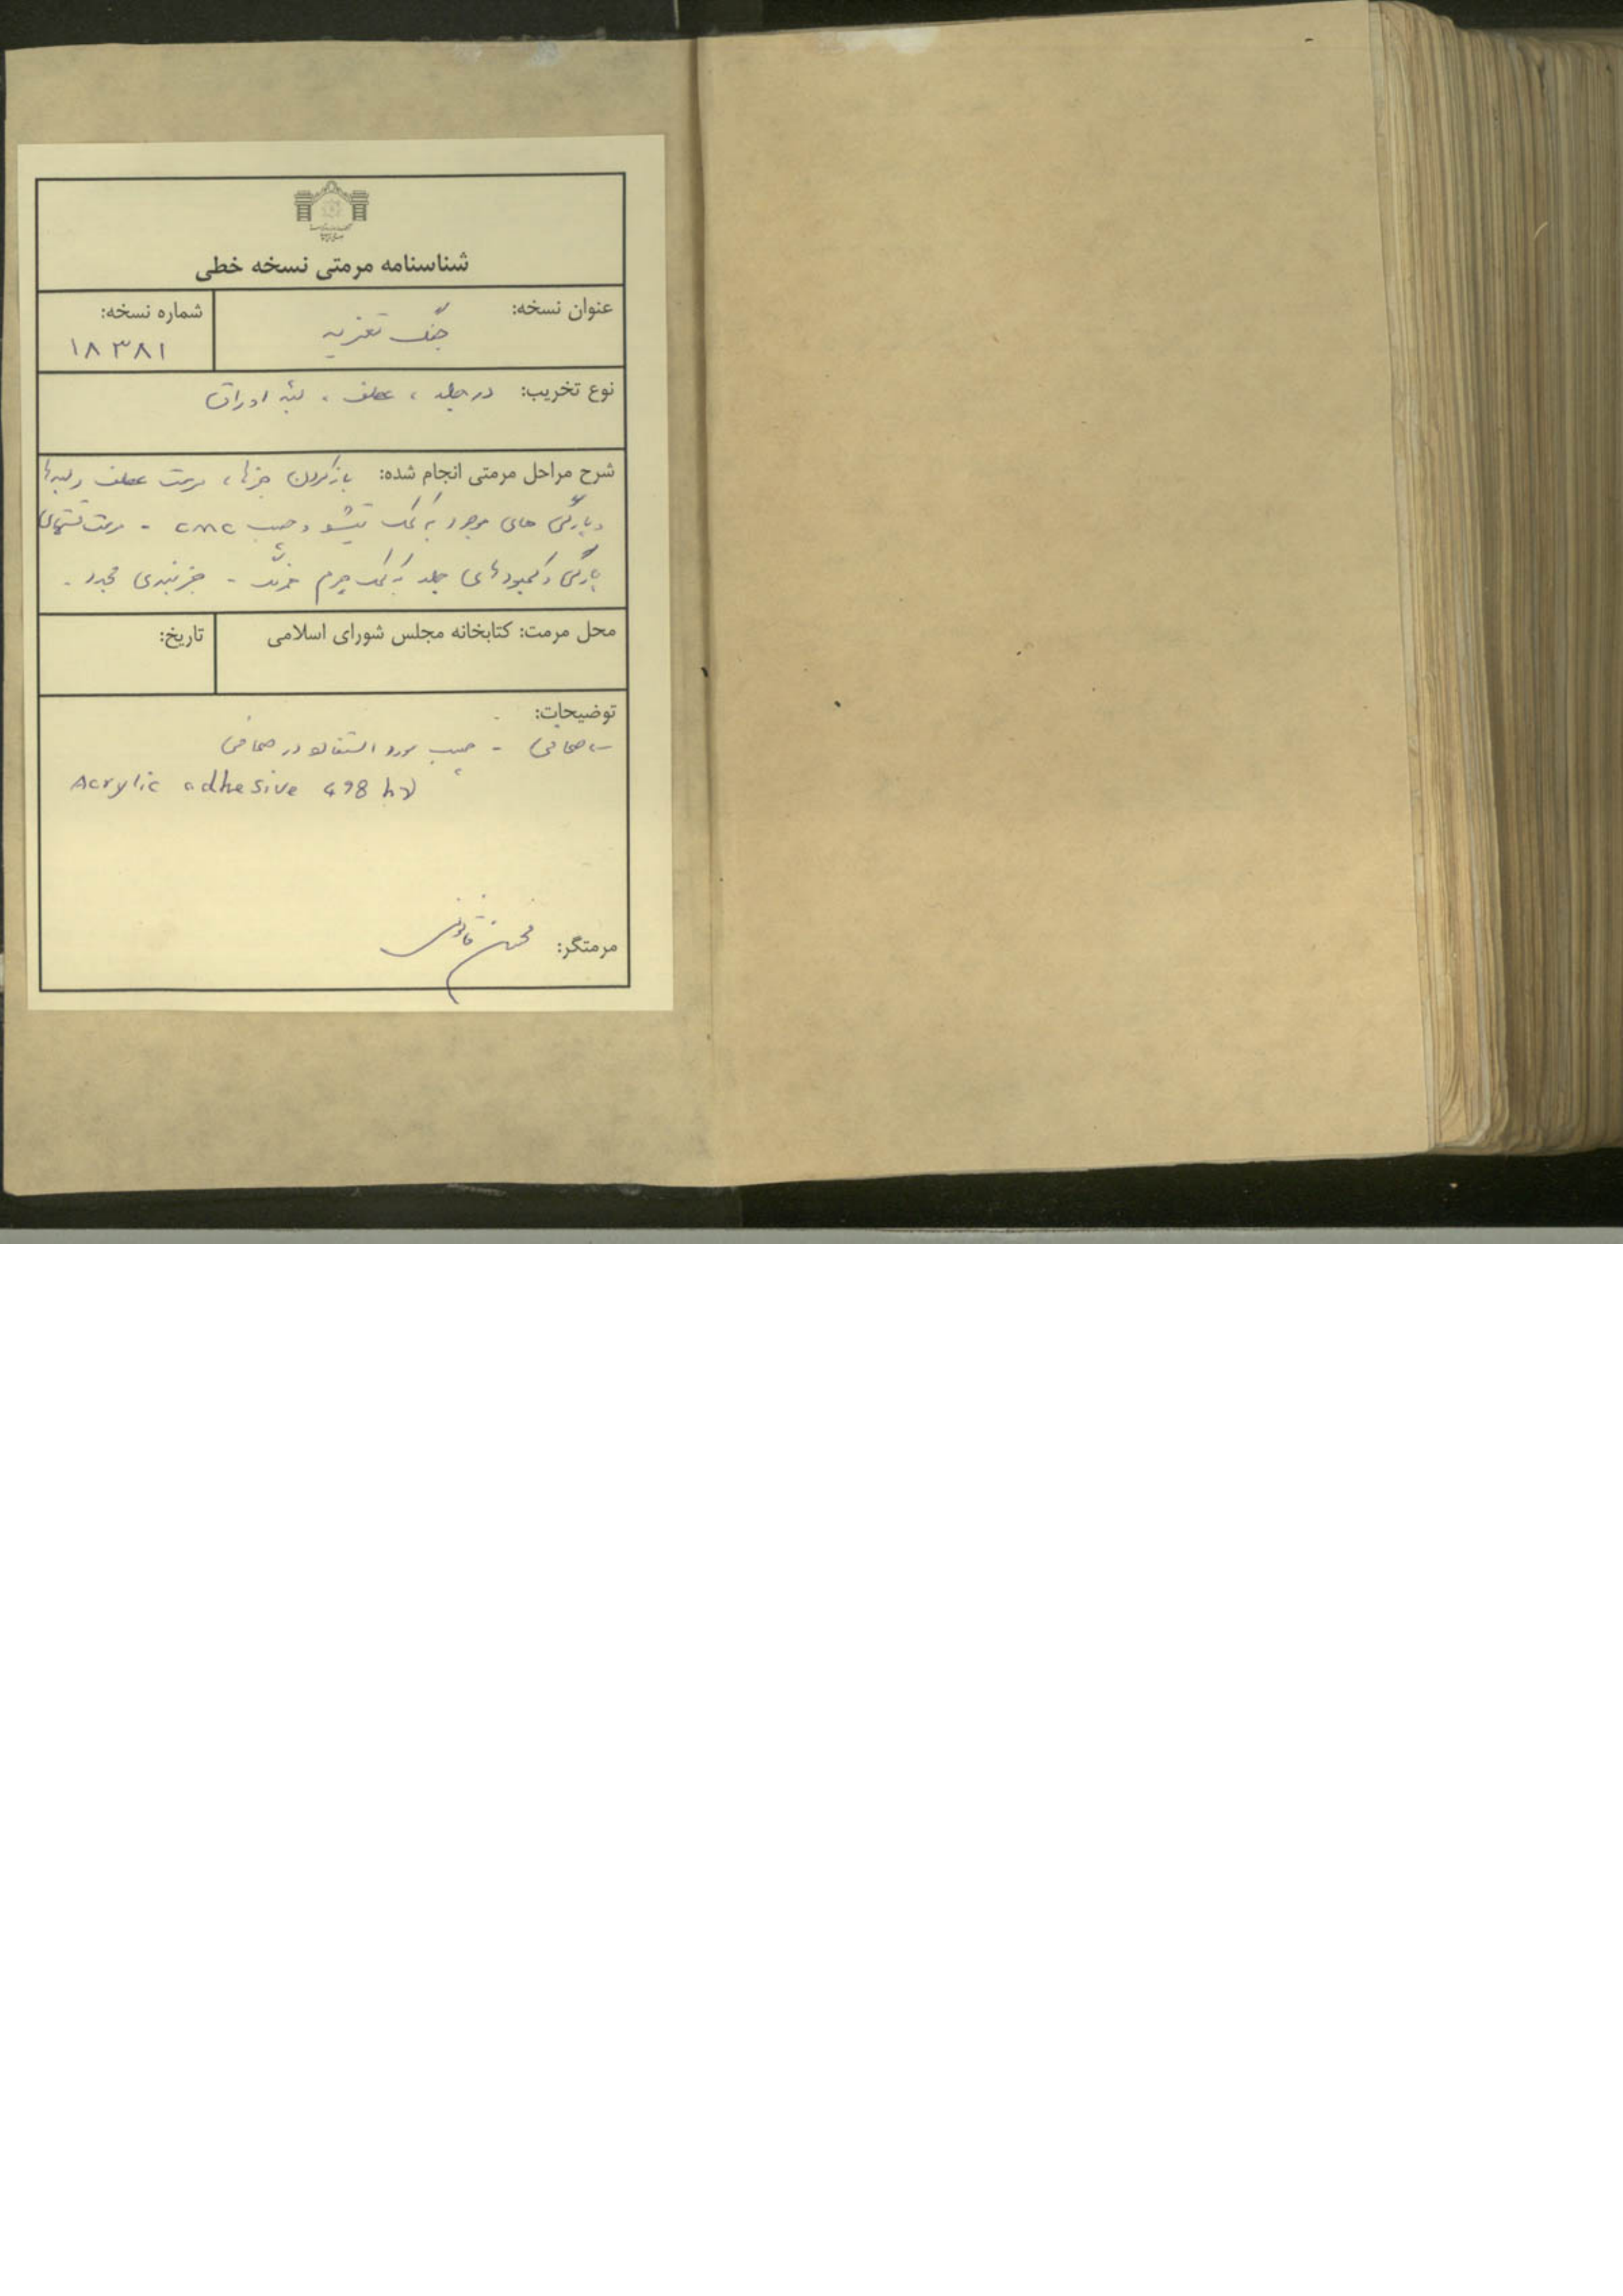 شناسنامه مرمتی نسخه خطی
عنوان نسخه: جنگ تعزیه
شماره نسخه: ۱۸۳۸۱
نوع تخریب: در جلد ، عطف ، لبه اوراق
شرح مراحل مرمتی انجام شده: باز کردن جزءها ، مرمت عطف و لبه‌ها
و پارگی های موجود به کمک تیشو و چسب cmc - مرمت قسمتهای
پارگی و کمبودهای جلد به کمک چرم - جزءبندی مجدد .
محل مرمت: کتابخانه مجلس شورای اسلامی
تاریخ:
توضیحات:
صحافی - چسب مورد استفاده در صحافی
Acrylic adhesive 498 hv
مرمتگر: